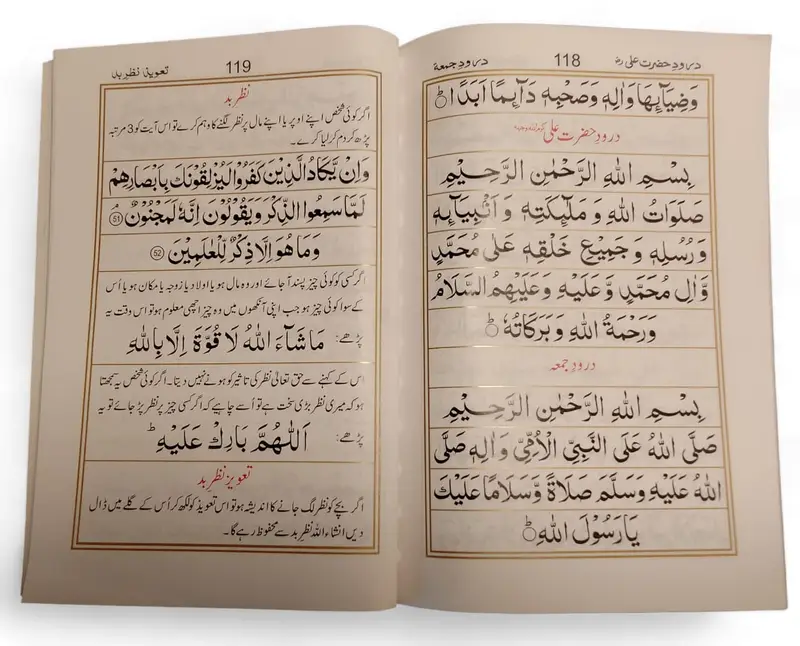 درودِ حضرت علی رضہ
118
درودِ جمعہ
وَضِيَآئِهَا وَاٰلِهٖ وَصَحْبِهٖ دَآئِمًا اَبَدًا ؕ
درودِ حضرت علی
بِسْمِ اللهِ الرَّحْمٰنِ الرَّحِيْمِ
صَلَوَاتُ اللهِ وَ مَلٰٓئِكَتِهٖ وَ اَنْۢبِيَآئِهٖ
وَ رُسُلِهٖ وَ جَمِيْعِ خَلْقِهٖ عَلٰى مُحَمَّدٍ
وَّاٰلِ مُحَمَّدٍ وَّعَلَيْهِ وَعَلَيْهِمُ السَّلَامُ
وَرَحْمَةُ اللهِ وَ بَرَكَاتُهٗ ؕ
درودِ جمعہ
بِسْمِ اللهِ الرَّحْمٰنِ الرَّحِيْمِ
صَلَّى اللهُ عَلَى النَّبِيِّ الْاُمِّيِّ وَ اٰلِهٖ صَلَّى
اللهُ عَلَيْهِ وَسَلَّمَ صَلَاةً وَّسَلَامًا عَلَيْكَ
يَا رَسُوْلَ اللهِ ؕ
119
تعویذ نظرِ بد
نظرِ بد
اگر کوئی شخص اپنے اوپر یا اپنے مال پر نظر لگنے کا وہم کرے تو اس آیت کو 3 مرتبہ
پڑھ کر دم کر لیا کرے۔
وَاِنْ يَّكَادُ الَّذِيْنَ كَفَرُوْا لَيُزْلِقُوْنَكَ بِاَبْصَارِهِمْ
لَمَّا سَمِعُوا الذِّكْرَ وَيَقُوْلُوْنَ اِنَّهٗ لَمَجْنُوْنٌ 51
وَمَا هُوَ اِلَّا ذِكْرٌ لِّلْعٰلَمِيْنَ 52
اگر کسی کو کوئی چیز پسند آ جائے اور وہ مال ہو یا اولاد یا زوجہ یا مکان ہو یا اُس
کے سوا کوئی چیز ہو جب اپنی آنکھوں میں وہ چیز اچھی معلوم ہو تو اس وقت یہ
پڑھے: مَاشَآءَ اللهُ لَا قُوَّةَ اِلَّا بِاللهِ
اس کے کہنے سے حق تعالیٰ نظر کی تاثیر کو ہونے نہیں دیتا۔ اگر کوئی شخص یہ سمجھتا
ہو کہ میری نظر بڑی سخت ہے تو اُسے چاہیے کہ اگر کسی چیز پر نظر پڑ جائے تو یہ
پڑھے: اَللّٰهُمَّ بَارِكْ عَلَيْهِ ؕ
تعویز نظرِ بد
اگر بچے کو نظر لگ جانے کا اندیشہ ہو تو اس تعویذ کو لکھ کر اُس کے گلے میں ڈال
دیں انشاء اللہ نظرِ بد سے محفوظ رہے گا۔